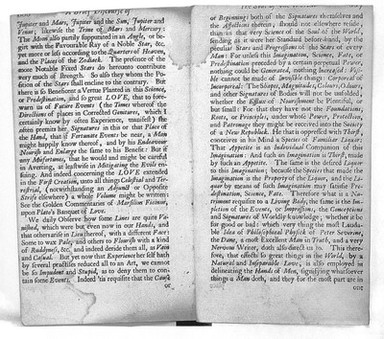 A Brief Discourse of
Jupiter and Mars, Jupiter and the Sun, Jupiter and
Venus; likewise the Trine of Mars and Mercury:
The Moon also partly supported in an Aspect, or be-
girt with the Favorable Ray of a Noble Star, &c.
yet more or less according to the Quarter of Heaven,
and the Places of the Zodiack. The presence of the
more Notable Fixed Stars do hereunto contribute
very much of strength. So also they whom the Po-
sition of the Stars shall incline to the contrary. But
there is so Beneficent a Vertue Planted in this Science,
or Predestination, and so great LOVE, that to fore-
warn us of Future Events (the Times whereof the
Directions of places in Corrected Genitures, which I
certainly know by often Experience, manifest) she
often premises her Signatures in this or that Place of
the Hand, that if Fortunate Events be near, a Man
might happily know thereof, and by his Endeavour
Nourish and Enlarge the same to his Benefit: But if
any Misfortune, that he would and might be careful
in Averting, at leastwise in Mitigating the Evils en-
suing. And indeed concerning the LOVE extended
in the First Creation, unto all things Celestial and Ter-
restrial, (notwithstanding an Adjunct or Opposite
Strife elsewhere) a whole Volume might be written:
See the Golden Commentaries of Marsilius Ficinus,
upon Plato's Banquet of Love.
We daily Observe how some Lines are quite Va-
nished, which were but even now in our Hands, and
that others arise in Lieu thereof, with a different Face:
Some to wax Pale, and others to Flourish with a kind
of Ruddiness, &c. and indeed deride them all, as Vain
and Casual. But yet now that Experience her self hath
by several practises reduced all to an Art, we cannot
be so Impudent and Stupid, as to deny them to con-
tain some Events. Indeed 'tis requisite that the Cause
or Beginning both of the Signatures themselves and
the Affections thereof, should not elsewhere reside
than in that very Science of the Soul of the World,
sending as it were her Standard before-hand, by the
peculiar Stars and Progressions of the Stars of every
Man: For unless this Imagination, Science, Fate, or
Predestination preceded by a certain perpetual Power,
nothing could be Generated, nothing Increased; Visi-
ble cannot be made of Invisible things; Corporeal of
Incorporeal: The Shapes, Magnitudes, Colours, Odours,
and other Signatures of Bodies will be unfolded,
whether the Estate of Nourishment be Plentiful, or
be small: For that they have not the Foundations,
Roots, or Principles, under whose Power, Protection,
and Patronage they might be received into the Society
of a New Republick. He that is oppressed with Thirst,
conceives in his Mind a Species of Familiar Liquor:
That Appetite is an Individual Companion of the
Imagination: And such an Imagination is Thirst, made
by such an Appetite. The same is the desired Liquor
to this Imagination; because the Species that made the
Imagination is the Property of the Liquor, and the Li-
quor by means of such Imagination may satisfie Pre-
destination, Science, Fate. Therefore what is a Nu-
triment requisite to a Living Body, the same is the Im-
pletion of the Events, or Impressions, the Conceptions
and Signatures of Worldly knowledge; whether it be
for good or bad: which very thing the most Lauda-
ble Idea of Philosophical Physick of Peter Severine,
the Dane, a most Excellent Man in Truth, and a very
Nervous Writer, doth also direct us to. This there-
fore, that effects so great things in the World, by a
Natural and Inseparable Love, is also employed in
delineating the Hands of Men, signifying whatsoever
things a Man doth, and they for the most part are in